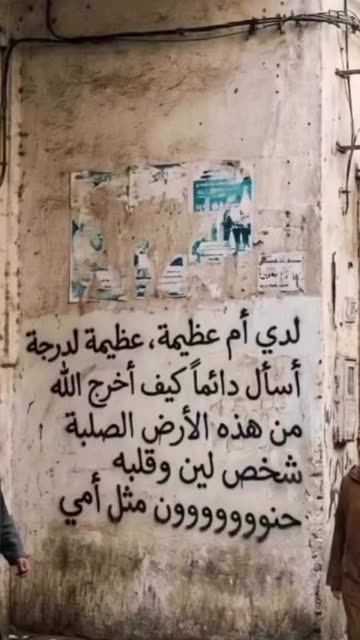 لدي أم عظيمة، عظيمة لدرجة
أسأل دائماً كيف أخرج الله
من هذه الأرض الصلبة
شخص لين وقلبه
حنووووووون مثل أمي